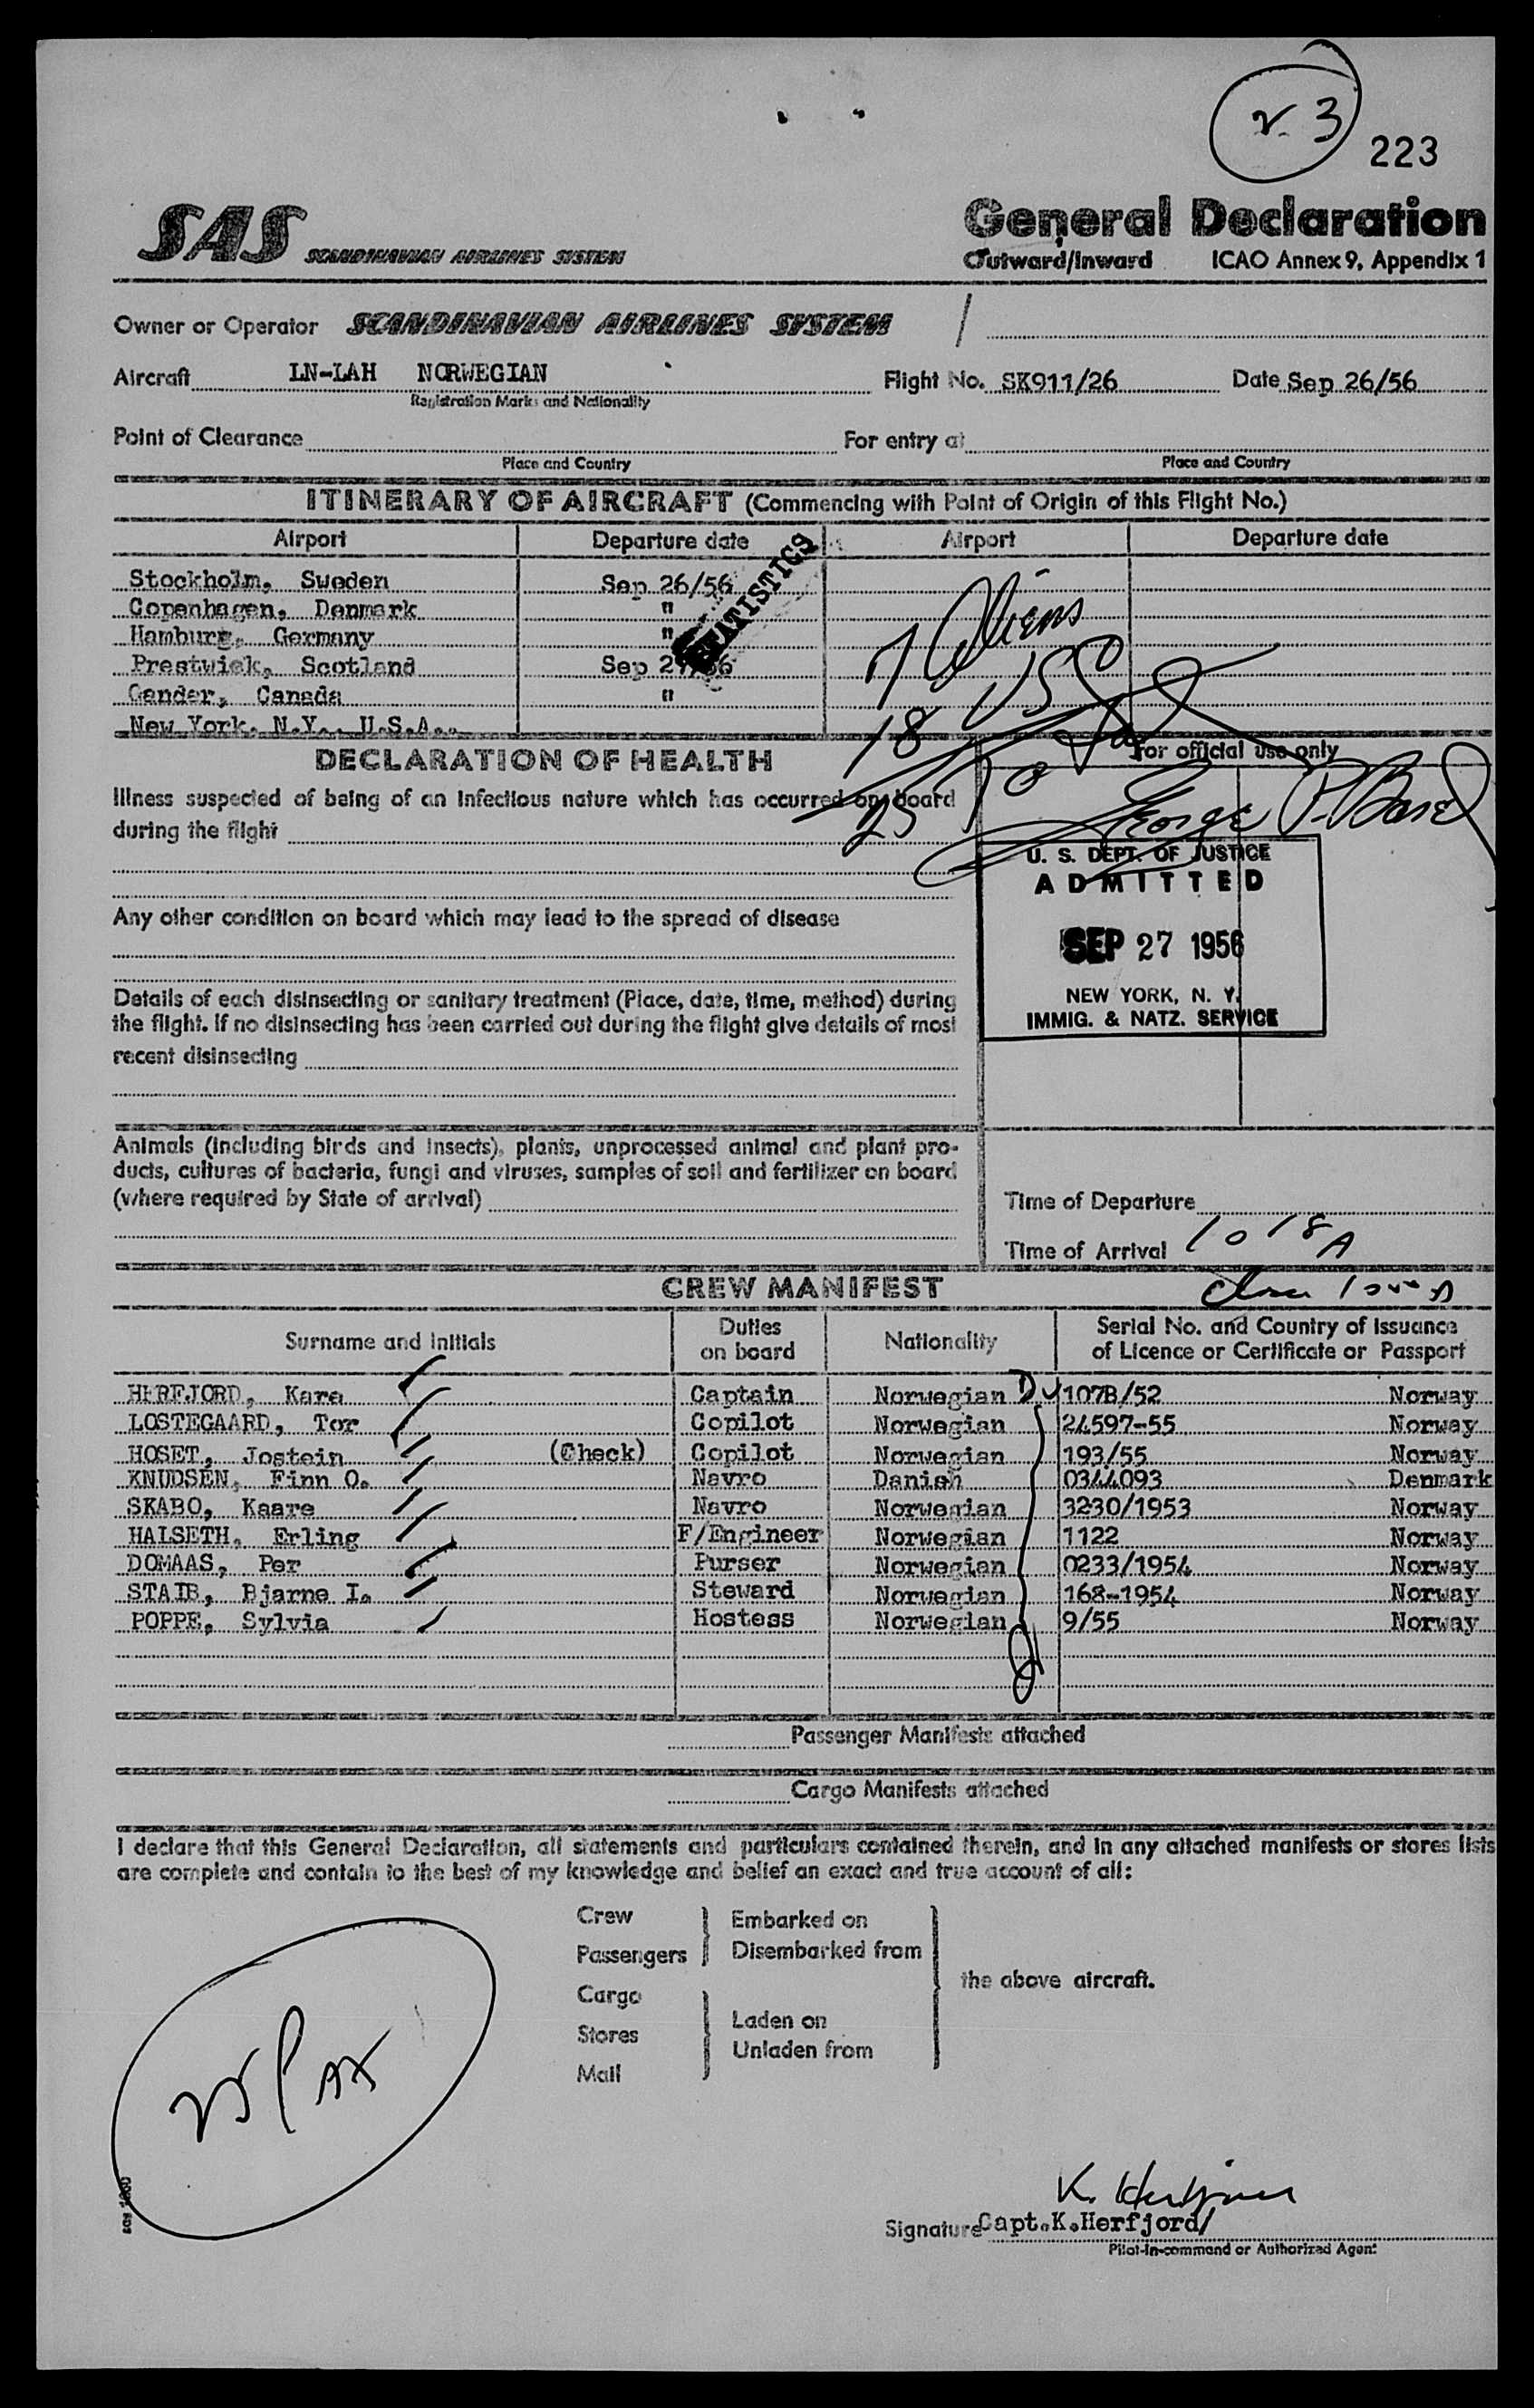 v. 3
223
SAS SCANDINAVIAN AIRLINES SYSTEM
General Declaration
Outward/Inward ICAO Annex 9, Appendix 1
Owner or Operator SCANDINAVIAN AIRLINES SYSTEM /
Aircraft LN-LAH NORWEGIAN Flight No. SK911/26 Date Sep 26/56
Registration Marks and Nationality
Point of Clearance For entry at
Place and Country Place and Country
ITINERARY OF AIRCRAFT (Commencing with Point of Origin of this Flight No.)
Airport Departure date Airport Departure date
STATISTICS
Stockholm, Sweden Sep 26/56
Copenhagen, Denmark "
Hamburg, Germany "
Prestwick, Scotland Sep 27/56
Gander, Canada "
New York, N.Y., U.S.A..
7 Aliens
18 USC
25
DECLARATION OF HEALTH
For official use only
Illness suspected of being of an infectious nature which has occurred on board
during the flight
George P.
U. S. DEPT. OF JUSTICE
ADMITTED
SEP 27 1956
NEW YORK, N. Y.
IMMIG. & NATZ. SERVICE
Any other condition on board which may lead to the spread of disease
Details of each disinsecting or sanitary treatment (Place, date, time, method) during
the flight. If no disinsecting has been carried out during the flight give details of most
recent disinsecting
Animals (including birds and insects), plants, unprocessed animal and plant pro-
ducts, cultures of bacteria, fungi and viruses, samples of soil and fertilizer on board
(where required by State of arrival)
Time of Departure
Time of Arrival 1018A
CREW MANIFEST
Surname and Initials Duties on board Nationality Serial No. and Country of Issuance of Licence or Certificate or Passport
HERFJORD, Kare Captain Norwegian 107B/52 Norway
LOSTEGAARD, Tor Copilot Norwegian 24597-55 Norway
HOSET, Jostein (Check) Copilot Norwegian 193/55 Norway
KNUDSEN, Finn O. Navro Danish 0344093 Denmark
SKABO, Kaare Navro Norwegian 3230/1953 Norway
HALSETH, Erling F/Engineer Norwegian 1122 Norway
DOMAAS, Per Purser Norwegian 0233/1954 Norway
STAIB, Bjarne I. Steward Norwegian 168-1954 Norway
POPPE, Sylvia Hostess Norwegian 9/55 Norway
Passenger Manifests attached
Cargo Manifests attached
I declare that this General Declaration, all statements and particulars contained therein, and in any attached manifests or stores lists
are complete and contain to the best of my knowledge and belief an exact and true account of all:
Crew Embarked on
Passengers Disembarked from
the above aircraft.
Cargo
Stores Laden on
Mail Unladen from
25 PAX
K. Herfjord
Signature Capt.K.Herfjord/
Pilot-in-command or Authorized Agent